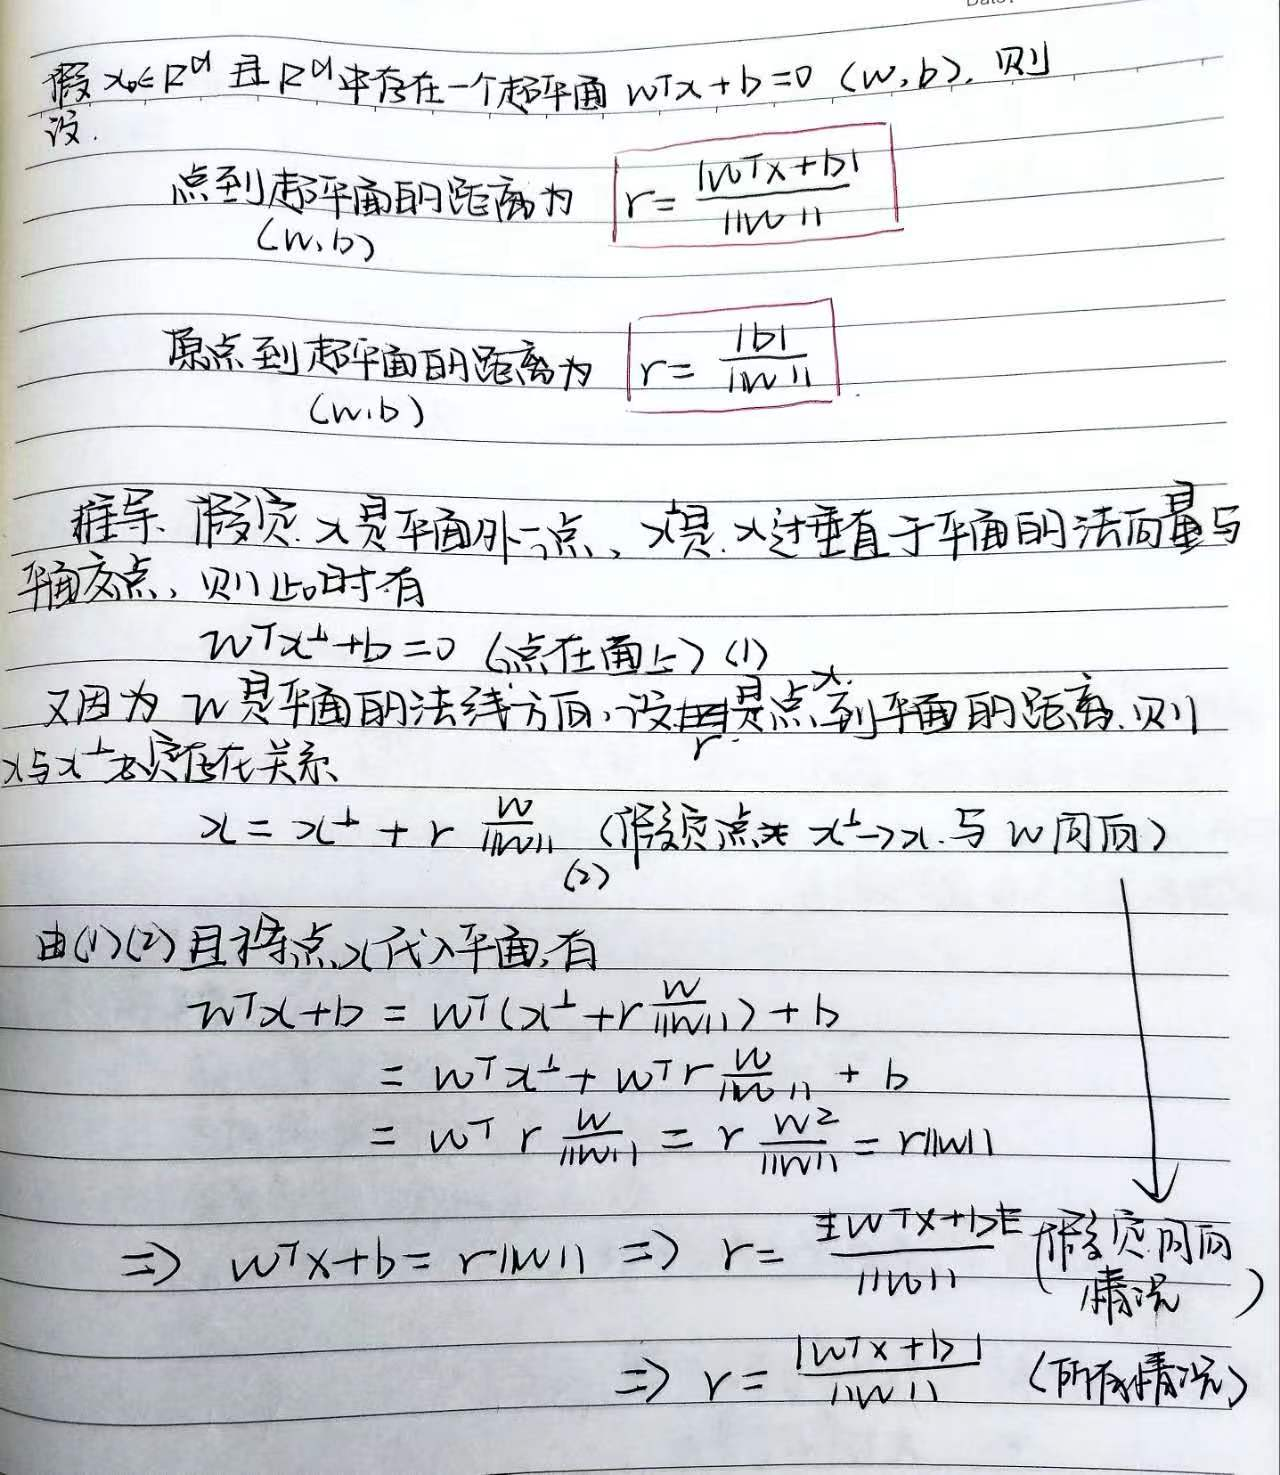 Date:
假设 x₀∈R^d 且 R^d 中存在一个超平面 w^Tx+b=0 (w,b), 则
点到超平面的距离为 r= |w^Tx+b| / ||w||
(w,b)
原点到超平面的距离为 r= |b| / ||w||
(w,b)
推导. 假定 x是平面外一点, x^⊥是 x过垂直于平面的法向量与
平面交点, 则此时有
w^Tx^⊥+b=0 (点在面上) (1)
又因为 w是平面的法线方向, 设 r 是点x到平面的距离. 则
x与x^⊥ 存在关系
x = x^⊥ + r w/||w|| (假定点 x^⊥→x 与 w 同向)
(2)
由(1)(2) 且将点x代入平面, 有
w^Tx+b = w^T(x^⊥+r w/||w||)+b
= w^Tx^⊥ + w^T r w/||w|| + b
= w^T r w/||w|| = r w²/||w|| = r||w||
⇒ w^Tx+b = r||w|| ⇒ r= w^Tx+b / ||w|| (假定同向情况)
⇒ r= |w^Tx+b| / ||w|| (所有情况)